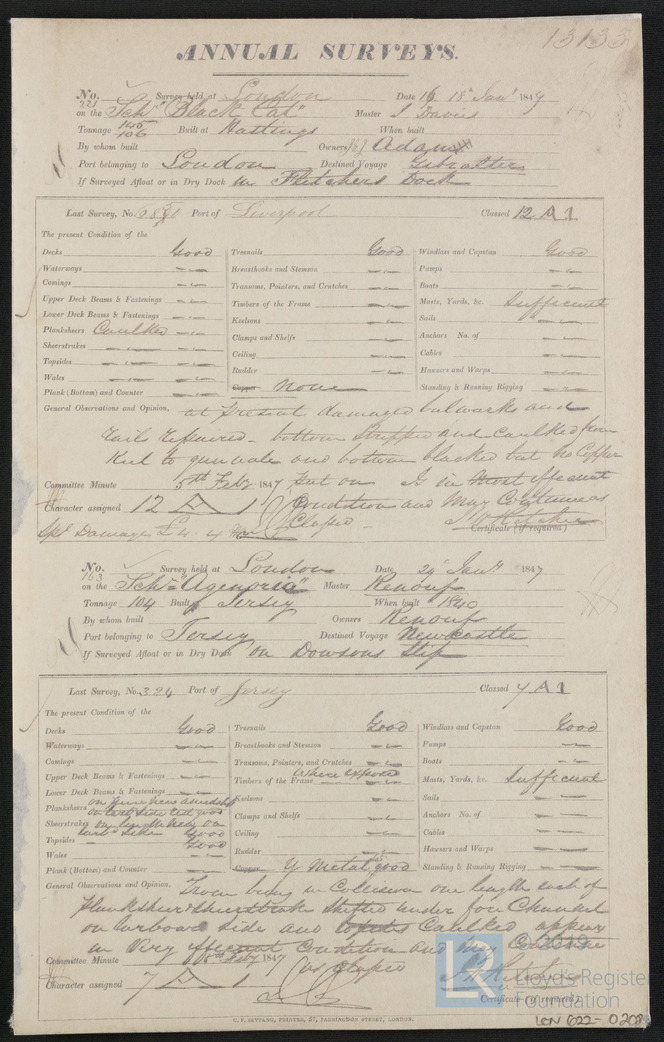 13133
ANNUAL SURVEYS.
No. 221 Survey held at London Date 16, 18th Jany 1847
on the Schr "Black Cat" Master J Davis
Tonnage 140/106 Built at Hastings When built
By whom built Owners Adams
Port belonging to London Destined Voyage Gibralter
If Surveyed Afloat or in Dry Dock in Fletchers Dock
Last Survey, No. Port of Liverpool Classed 12 A 1
The present Condition of the
Decks Good
Waterways
Comings
Upper Deck Beams & Fastenings
Lower Deck Beams & Fastenings
Planksheers Caulked
Sheerstrakes
Topsides
Wales
Plank (Bottom) and Counter
Treenails Good
Breasthooks and Stemson
Transoms, Pointers, and Crutches
Timbers of the Frame
Keelsons
Clamps and Shelfs
Ceiling
Rudder
Copper none
Windlass and Capstan Good
Pumps
Boats
Masts, Yards, &c. Sufficient
Sails
Anchors No. of
Cables
Hawsers and Warps
Standing & Running Rigging
General Observations and Opinion, at present damaged bulwarks and
rails repaired - bottom stripped and caulked from
Keel to gunwale and bottom blacked but no Copper
put on Is in Most efficient
Committee Minute 5th Feby 1847
Condition and May Continue as
Character assigned 12 A 1
Classed -
Certificate (if required)
Damage £4. 4
No. 163 Survey held at London Date 29 Jany 1847
on the Schr "Agenoria" Master Renouf
Tonnage 104 Built Jersey When built 1840
By whom built Owners Renouf
Port belonging to Jersey Destined Voyage Newcastle
If Surveyed Afloat or in Dry Dock on Dowsons Slip
Last Survey, No. 324 Port of Jersey Classed 7 A 1
The present Condition of the
Decks Good
Waterways
Comings
Upper Deck Beams & Fastenings
Lower Deck Beams & Fastenings
Planksheers
Sheerstrakes
Topsides Good
Wales
Plank (Bottom) and Counter
Treenails Good
Breasthooks and Stemson
Transoms, Pointers, and Crutches
Timbers of the Frame Where exposed
Keelsons
Clamps and Shelfs
Ceiling
Rudder
Copper Y Metal good
Windlass and Capstan Good
Pumps
Boats
Masts, Yards, &c. Sufficient
Sails
Anchors No. of
Cables
Hawsers and Warps
Standing & Running Rigging
General Observations and Opinion, From being in Collision one length each of
planksheer & sheerstrake shifted under fore Channel
on larboard side and topsides Caulked appears
in Very efficient Condition and May Continue
as Classed
Committee Minute Feby 1847
Character assigned 7 A 1
Certificate (if required)
C. F. SEYFANG, PRINTER, 57, FARRINGDON STREET, LONDON.
© 2019
LR
Lloyd's Register
Foundation
LON 622-0208